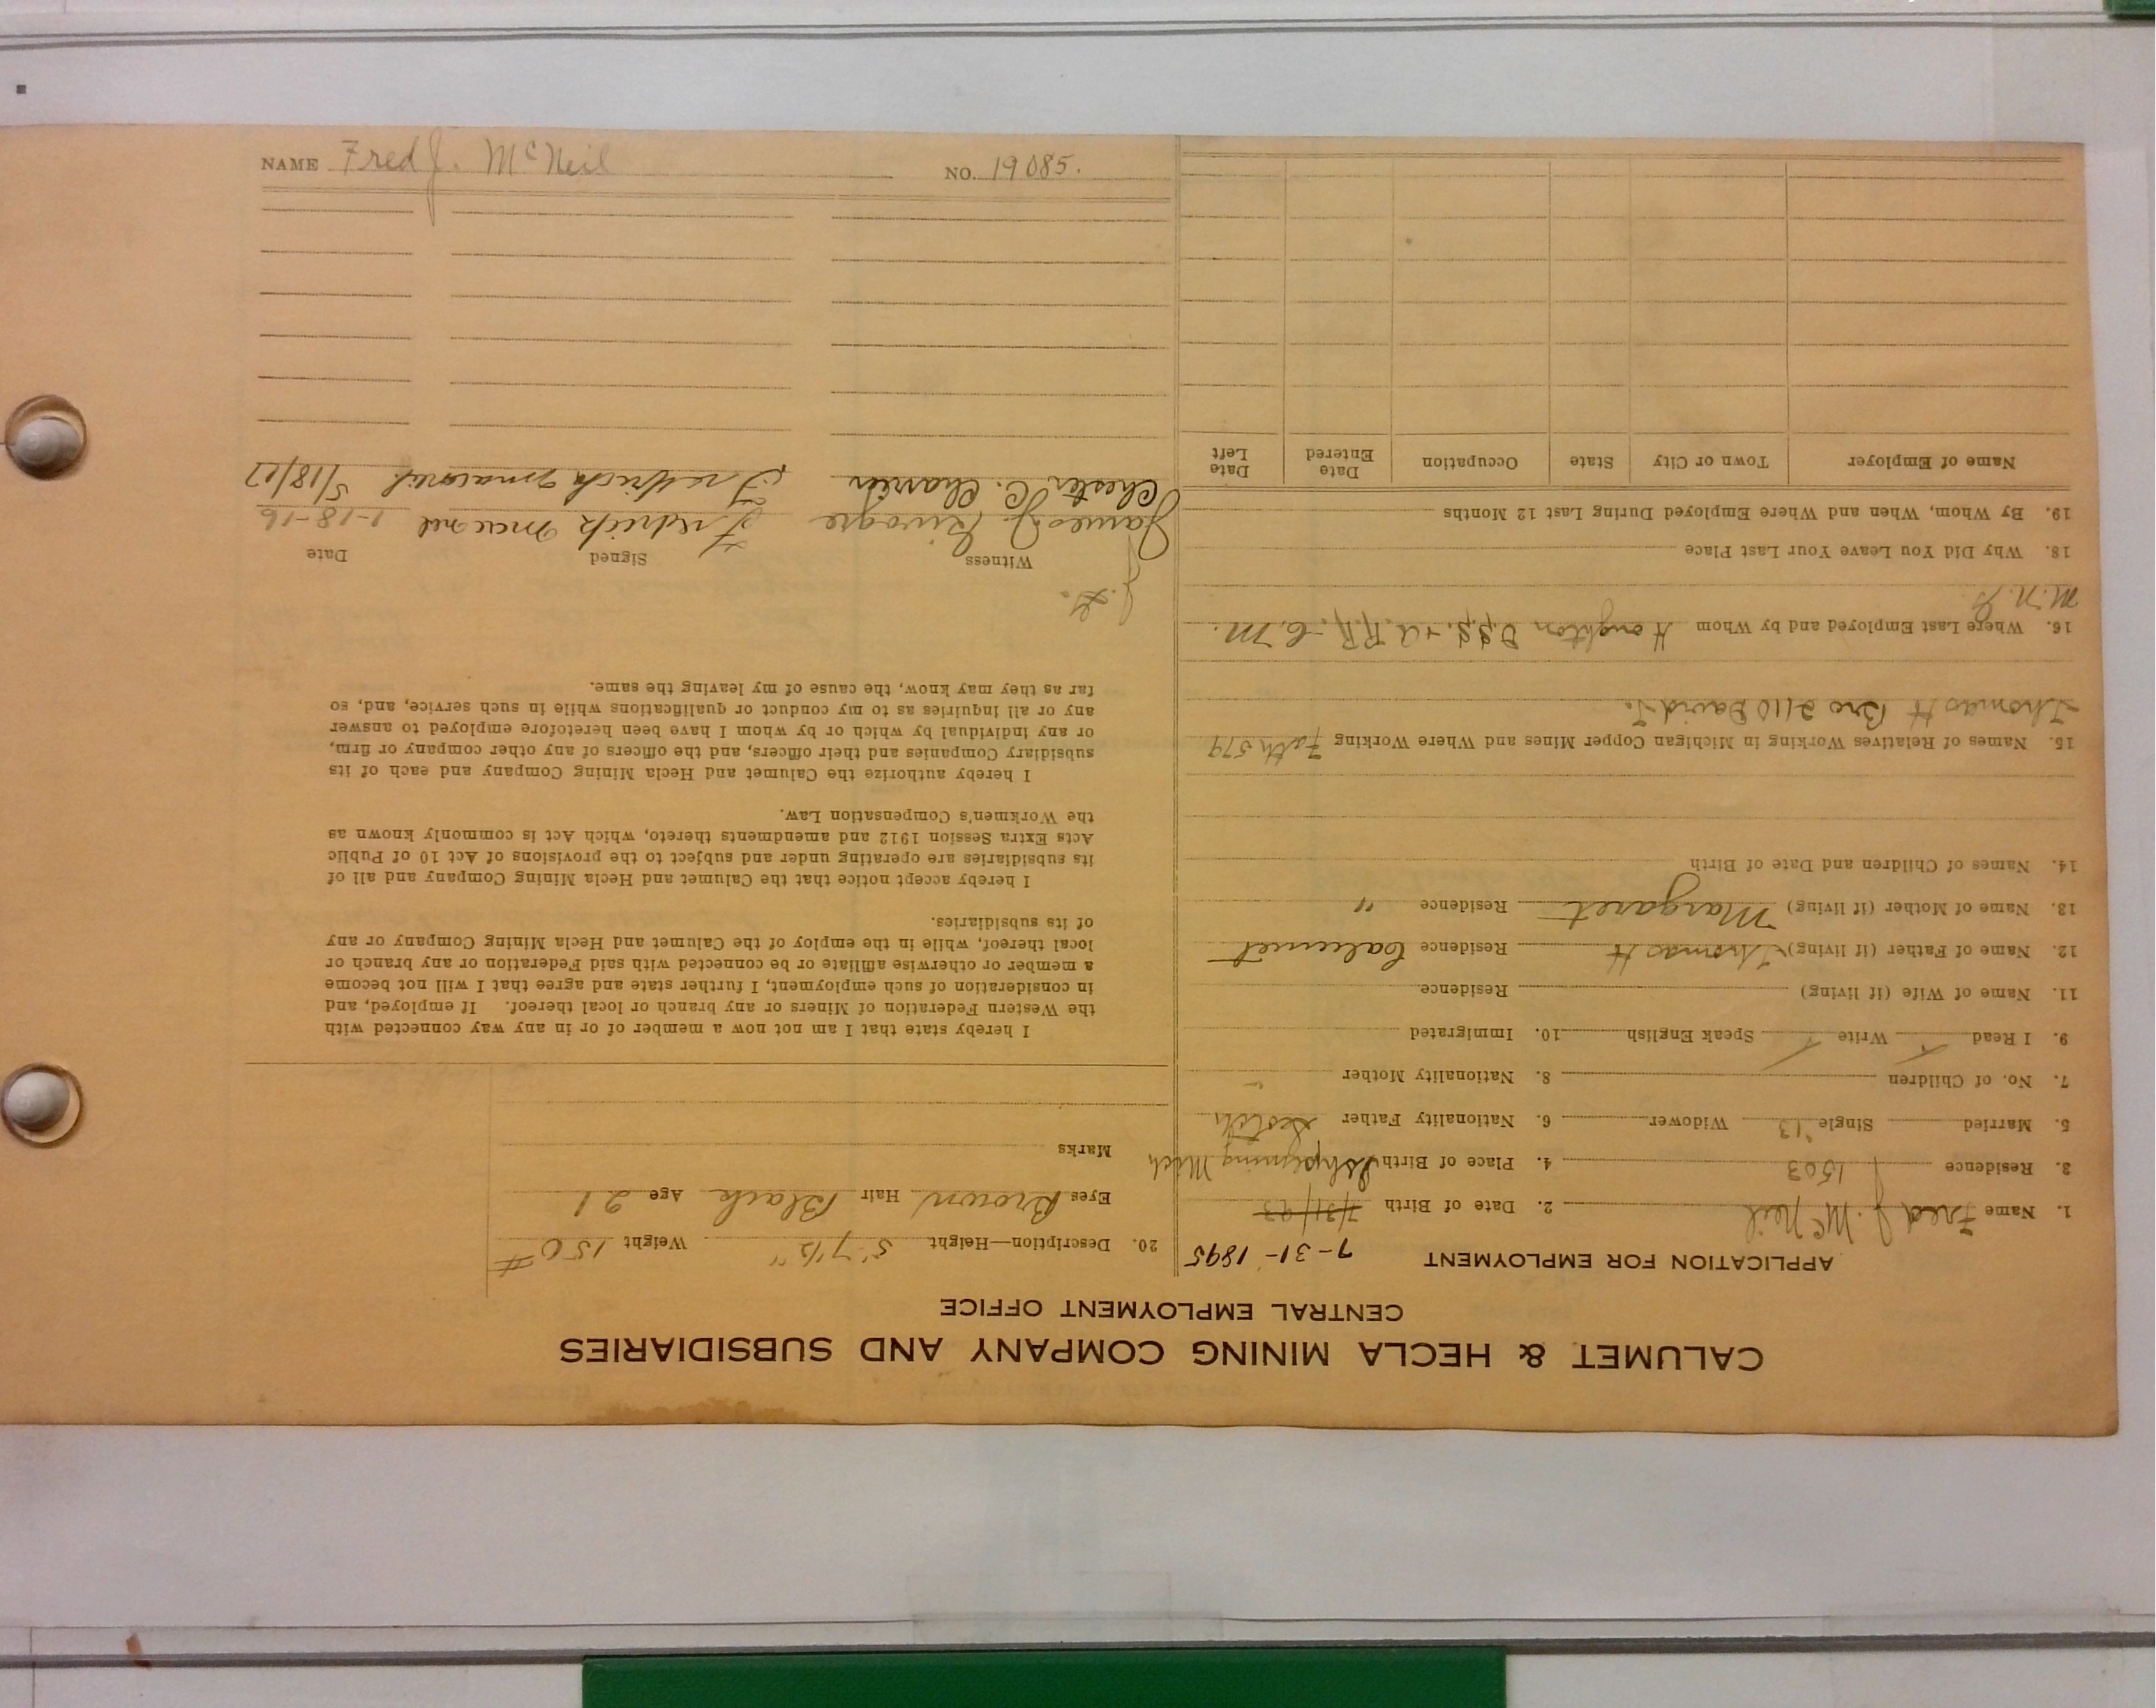 CALUMET & HECLA MINING COMPANY AND SUBSIDIARIES
CENTRAL EMPLOYMENT OFFICE
APPLICATION FOR EMPLOYMENT 7-31-1895
1. Name Fred J. McNeil 2. Date of Birth 7/31/93
3. Residence 1503 4. Place of Birth Ishpeming Mich
5. Married Single "13 Widower 6. Nationality Father Scotch
7. No. of Children 8. Nationality Mother "
9. I Read / Write / Speak English 10. Immigrated
11. Name of Wife (if living) Residence
12. Name of Father (if living) Thomas H Residence Calumet
13. Name of Mother (if living) Margaret Residence "
14. Names of Children and Date of Birth
15. Names of Relatives Working in Michigan Copper Mines and Where Working Fath 579
Thomas H Bro 2110 David J.
16. Where Last Employed and by Whom Houghton D.S.S. & A. R.R. - C. M.
M. N. G
18. Why Did You Leave Your Last Place
19. By Whom, When and Where Employed During Last 12 Months
Name of Employer Town or City State Occupation Date Entered Date Left
20. Description—Height 5' 7 1/2" Weight 150 #
Eyes Brown Hair Black Age 21
Marks
I hereby state that I am not now a member of or in any way connected with
the Western Federation of Miners or any branch or local thereof. If employed, and
in consideration of such employment, I further state and agree that I will not become
a member or otherwise affiliate or be connected with said Federation or any branch or
local thereof, while in the employ of the Calumet and Hecla Mining Company or any
of its subsidiaries.
I hereby accept notice that the Calumet and Hecla Mining Company and all of
its subsidiaries are operating under and subject to the provisions of Act 10 of Public
Acts Extra Session 1912 and amendments thereto, which Act is commonly known as
the Workmen's Compensation Law.
I hereby authorize the Calumet and Hecla Mining Company and each of its
subsidiary Companies and their officers, and the officers of any other company or firm,
or any individual by which or by whom I have been heretofore employed to answer
any or all inquiries as to my conduct or qualifications while in such service, and, so
far as they may know, the cause of my leaving the same.
Witness Signed Date
James J. Fredrick 1-18-16
Chester C. Fredrick 5/18/17
NAME Fred J. McNeil NO. 19085.